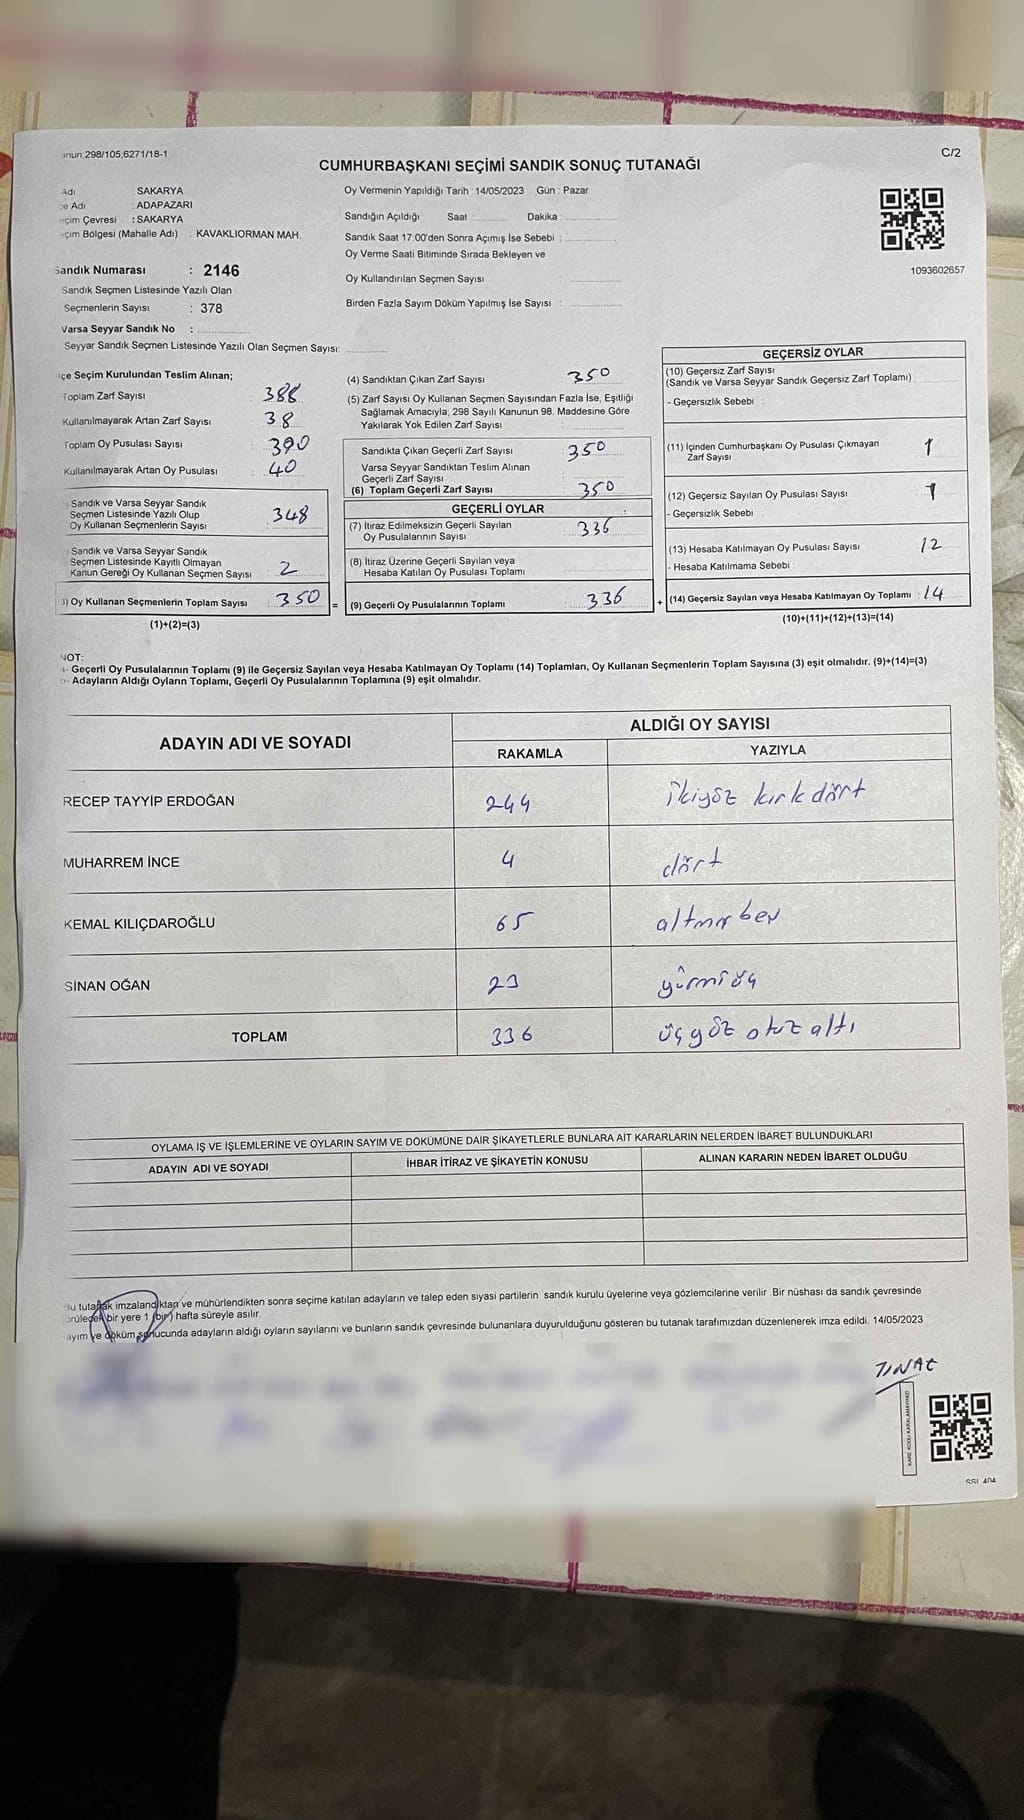 anun:298/105,6271/18-1
C/2
CUMHURBAŞKANI SEÇİMİ SANDIK SONUÇ TUTANAĞI
Adı : SAKARYA
çe Adı : ADAPAZARI
eçim Çevresi : SAKARYA
eçim Bölgesi (Mahalle Adı) : KAVAKLIORMAN MAH.
Sandık Numarası : 2146
Sandık Seçmen Listesinde Yazılı Olan
Seçmenlerin Sayısı : 378
Varsa Seyyar Sandık No :
Seyyar Sandık Seçmen Listesinde Yazılı Olan Seçmen Sayısı:
Oy Vermenin Yapıldığı Tarih : 14/05/2023 Gün : Pazar
Sandığın Açıldığı Saat Dakika :
Sandık Saat 17:00'den Sonra Açımış İse Sebebi :
Oy Verme Saati Bitiminde Sırada Bekleyen ve
Oy Kullandırılan Seçmen Sayısı :
Birden Fazla Sayım Döküm Yapılmış İse Sayısı :
1093602657
lçe Seçim Kurulundan Teslim Alınan;
Toplam Zarf Sayısı : 388
Kullanılmayarak Artan Zarf Sayısı : 38
Toplam Oy Pusulası Sayısı : 390
Kullanılmayarak Artan Oy Pusulası : 40
) Sandık ve Varsa Seyyar Sandık
Seçmen Listesinde Yazılı Olup
Oy Kullanan Seçmenlerin Sayısı 348
) Sandık ve Varsa Seyyar Sandık
Seçmen Listesinde Kayıtlı Olmayan
Kanun Gereği Oy Kullanan Seçmen Sayısı 2
3) Oy Kullanan Seçmenlerin Toplam Sayısı : 350
(1)+(2)=(3)
=
(4) Sandıktan Çıkan Zarf Sayısı : 350
(5) Zarf Sayısı Oy Kullanan Seçmen Sayısından Fazla İse, Eşitliği
Sağlamak Amacıyla, 298 Sayılı Kanunun 98. Maddesine Göre
Yakılarak Yok Edilen Zarf Sayısı :
Sandıkta Çıkan Geçerli Zarf Sayısı : 350
Varsa Seyyar Sandıktan Teslim Alınan
Geçerli Zarf Sayısı
(6) Toplam Geçerli Zarf Sayısı : 350
GEÇERLİ OYLAR
(7) İtiraz Edilmeksizin Geçerli Sayılan
Oy Pusulalarının Sayısı : 336
(8) İtiraz Üzerine Geçerli Sayılan veya
Hesaba Katılan Oy Pusulası Toplamı
(9) Geçerli Oy Pusulalarının Toplamı 336
+
GEÇERSİZ OYLAR
(10) Geçersiz Zarf Sayısı
(Sandık ve Varsa Seyyar Sandık Geçersiz Zarf Toplamı) :
- Geçersizlik Sebebi :
(11) İçinden Cumhurbaşkanı Oy Pusulası Çıkmayan
Zarf Sayısı 1
(12) Geçersiz Sayılan Oy Pusulası Sayısı 1
- Geçersizlik Sebebi :
(13) Hesaba Katılmayan Oy Pusulası Sayısı 12
- Hesaba Katılmama Sebebi :
(14) Geçersiz Sayılan veya Hesaba Katılmayan Oy Toplamı : 14
(10)+(11)+(12)+(13)=(14)
NOT:
- Geçerli Oy Pusulalarının Toplamı (9) ile Geçersiz Sayılan veya Hesaba Katılmayan Oy Toplamı (14) Toplamları, Oy Kullanan Seçmenlerin Toplam Sayısına (3) eşit olmalıdır. (9)+(14)=(3)
- Adayların Aldığı Oyların Toplamı, Geçerli Oy Pusulalarının Toplamına (9) eşit olmalıdır.
ADAYIN ADI VE SOYADI
ALDIĞI OY SAYISI
RAKAMLA YAZIYLA
RECEP TAYYİP ERDOĞAN 244 ikiyüz kırkdört
MUHARREM İNCE 4 dört
KEMAL KILIÇDAROĞLU 65 altmışbeş
SİNAN OĞAN 23 yirmiüç
TOPLAM 336 üçyüz otuz altı
OYLAMA İŞ VE İŞLEMLERİNE VE OYLARIN SAYIM VE DÖKÜMÜNE DAİR ŞİKAYETLERLE BUNLARA AİT KARARLARIN NELERDEN İBARET BULUNDUKLARI
ADAYIN ADI VE SOYADI İHBAR İTİRAZ VE ŞİKAYETİN KONUSU ALINAN KARARIN NEDEN İBARET OLDUĞU
Bu tutanak imzalandıktan ve mühürlendikten sonra seçime katılan adayların ve talep eden siyasi partilerin sandık kurulu üyelerine veya gözlemcilerine verilir .Bir nüshası da sandık çevresinde
örülecek bir yere 1 (bir) hafta süreyle asılır.
ayım ve döküm sonucunda adayların aldığı oyların sayılarını ve bunların sandık çevresinde bulunanlara duyurulduğunu gösteren bu tutanak tarafımızdan düzenlenerek imza edildi. 14/05/2023
KARE KODU KARALAMAYINIZ!